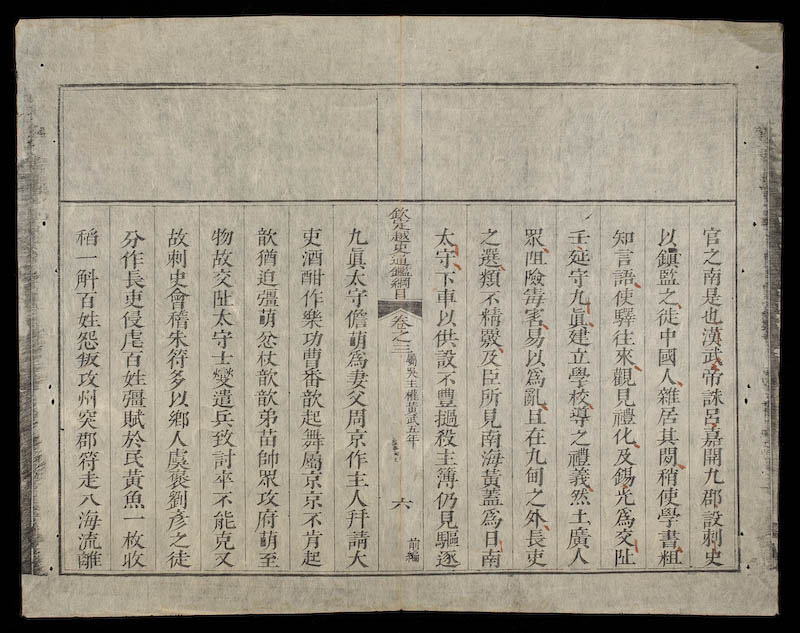 官之南是也漢武帝誅呂嘉開九郡設刺史
以鎮監之徒中國人雜居其間稍使學書粗
知言語使驛往來觀見禮化及錫光為交趾
壬延守九眞建立學校導之禮義然土廣人
眾阻險毒害易以為亂且在九甸之外長吏
之選類不精覈及臣所見南海黃蓋為日南
太守下車以供設不豐撾殺主簿仍見驅逐
欽定越史通鑑綱目
卷之三
屬吳主權黃武五年
六
前編
九眞太守儋萌為妻父周京作主人幷請大
吏酒酣作樂功曹番歆起舞屬京京不肯起
歆猶迫彊萌忿杖歆歆弟苗帥眾攻府萌至
物故交趾太守士燮遣兵致討卒不能克又
故刺史會稽朱符多以鄉人虞褒劉彥之徒
分作長吏侵虐百姓彊賦於民黃魚一枚收
稻一斛百姓怨叛攻州突郡符走入海流離